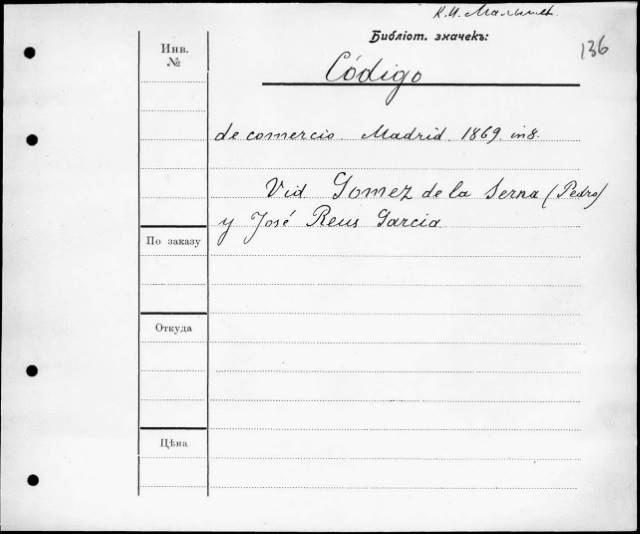 К.И. Малышев.
Библіот. значекъ:
136
Инв.
№
Código
de comercio. Madrid. 1869. in 8.
Vid. Gomez de la Serna (Pedro)
y José Reus Garcia.
По заказу
Откуда
Цѣна